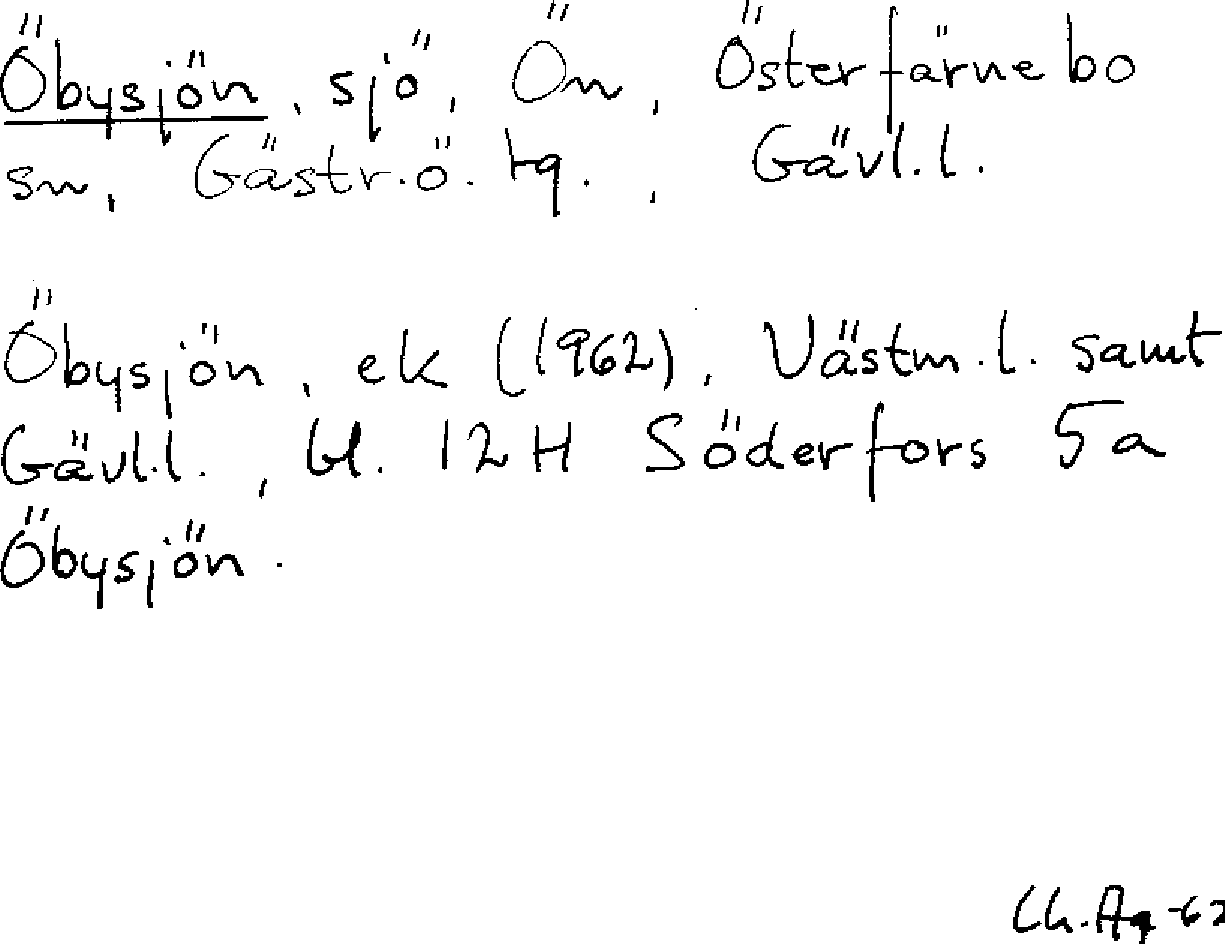 Öbysjön, sjö, Ön, Österfärnebo
sn, Gästr.ö. tg., Gävl.l.
Öbysjön, ek (1962), Västm.l. samt
Gävl.l., bl. 12H Söderfors 5a
Öbysjön.
Ch.Ag -62